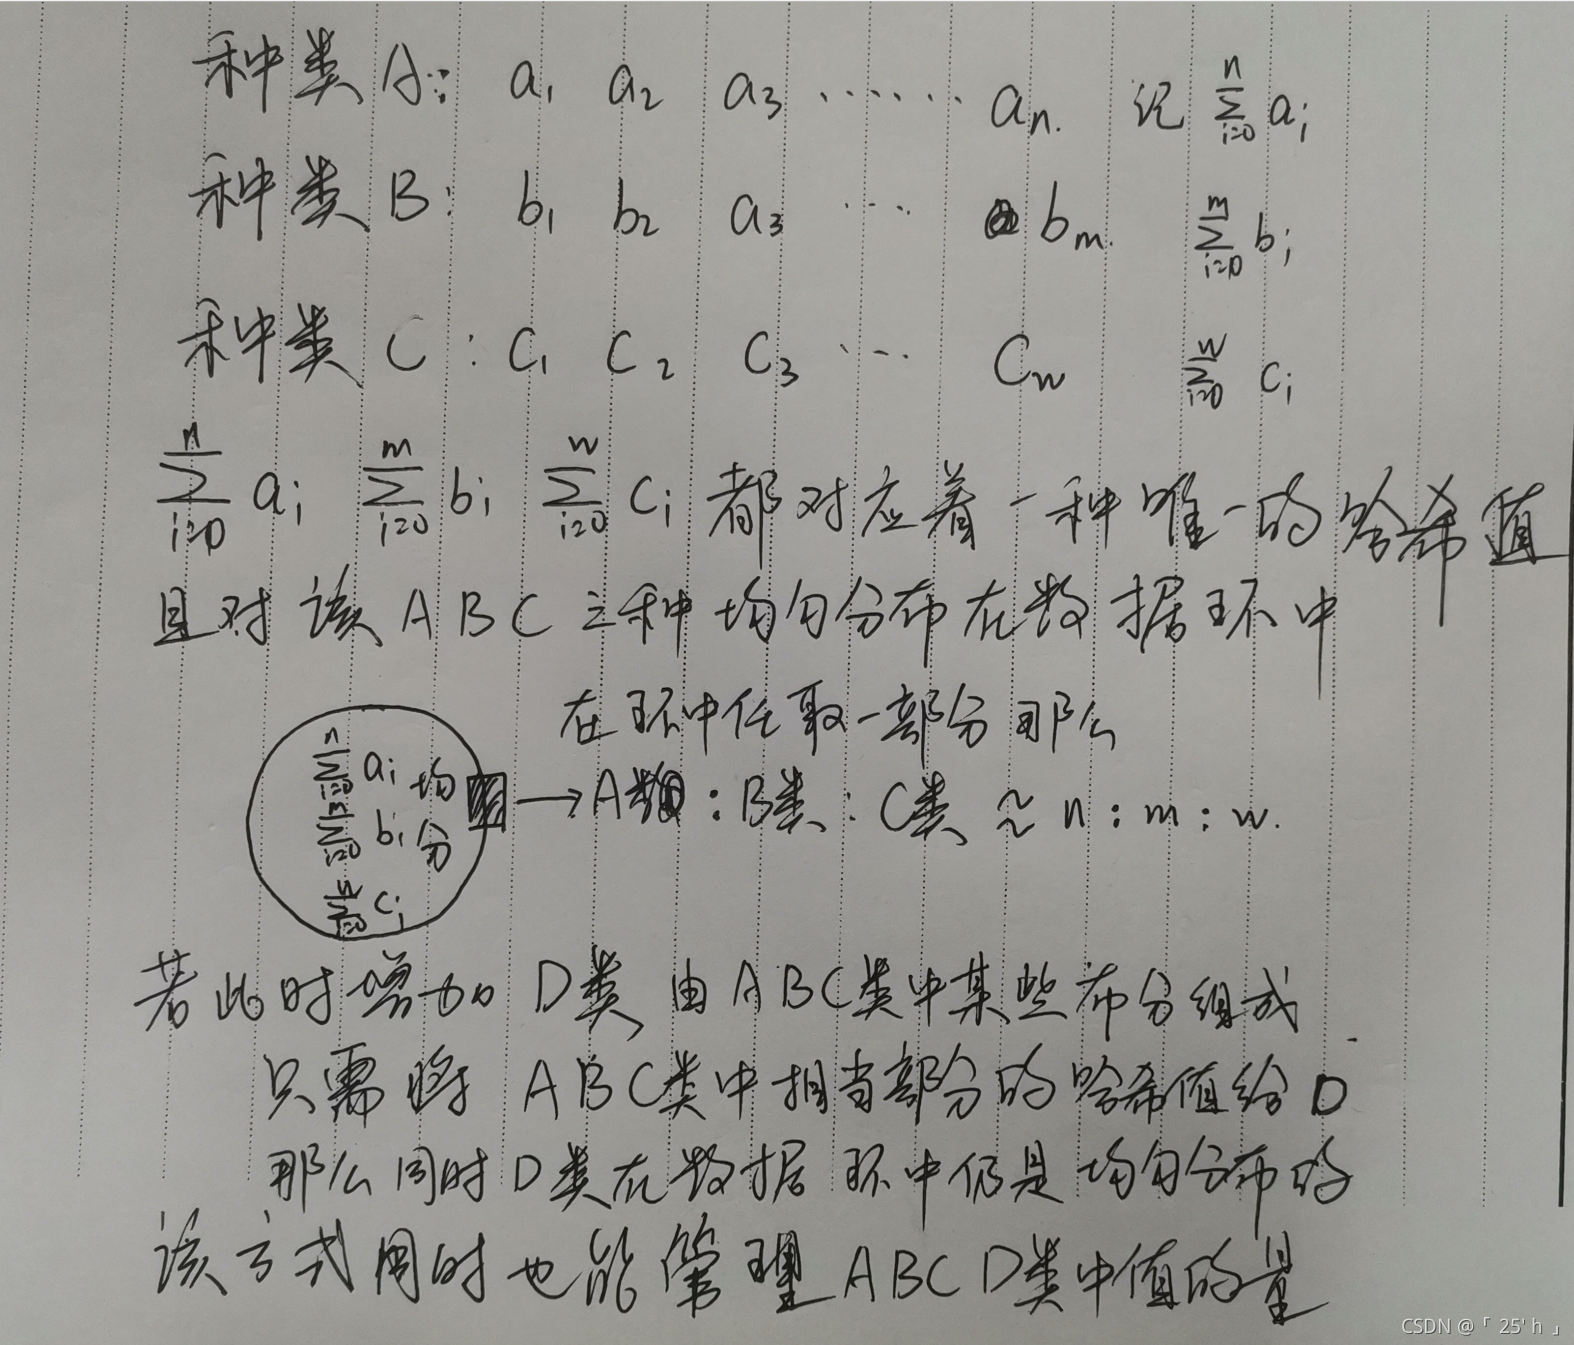 种类A: a₁ a₂ a₃ ······ aₙ. 记 \sum_{i=0}^{n} aᵢ
种类B: b₁ b₂ a₃ ··· bₘ. \sum_{i=0}^{m} bᵢ
种类C: C₁ C₂ C₃ ··· C_w \sum_{i=0}^{w} cᵢ
\sum_{i=0}^{n} aᵢ \sum_{i=0}^{m} bᵢ \sum_{i=0}^{w} cᵢ 都对应着一种唯一的哈希值
且对该ABC三种均匀分布在数据环中
在环中任取一部分那么
\sum_{i=0}^{n} aᵢ 均
\sum_{i=0}^{m} bᵢ 分
\sum_{i=0}^{w} cᵢ
→A类:B类:C类≈n:m:w.
若此时增加D类 由ABC类中某些布分组成
只需将ABC类中相当部分的哈希值给D
那么同时D类在数据环中仍是均匀分布的
该方式同时也能管理ABCD类中值的量
CSDN @「 25' h 」